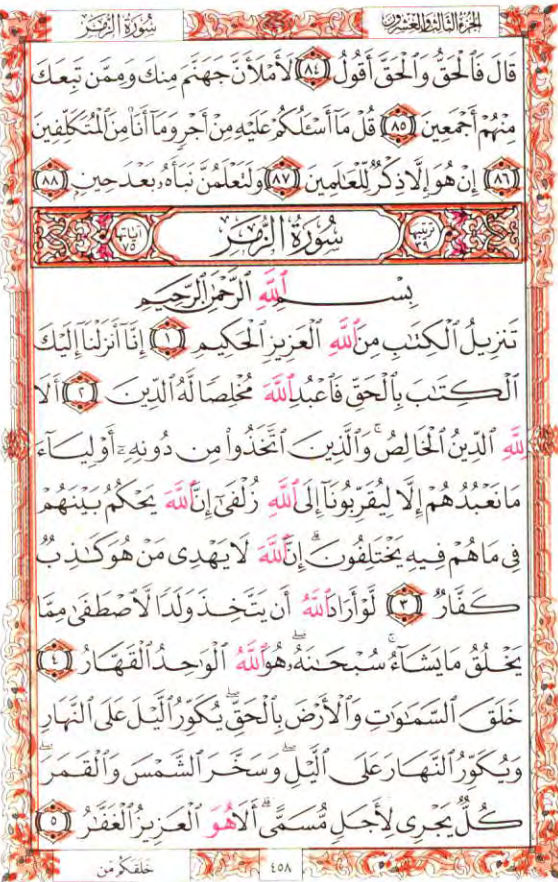 سُورَةُ الزُّمَرِ الجُزْءُ الثَّالِثُ وَالعِشْرُونَ
قَالَ فَٱلْحَقُّ وَٱلْحَقَّ أَقُولُ ٨٤ لَأَمْلَأَنَّ جَهَنَّمَ مِنكَ وَمِمَّن تَبِعَكَ
مِنْهُمْ أَجْمَعِينَ ٨٥ قُلْ مَآ أَسْـَٔلُكُمْ عَلَيْهِ مِنْ أَجْرٍ وَمَآ أَنَا۠ مِنَ ٱلْمُتَكَلِّفِينَ
٨٦ إِنْ هُوَ إِلَّا ذِكْرٌ لِّلْعَـٰلَمِينَ ٨٧ وَلَتَعْلَمُنَّ نَبَأَهُۥ بَعْدَ حِينٍۭ ٨٨
ترتيبها ٣٩ سُورَةُ الزُّمَرِ آياتها ٧٥
بِسْمِ ٱللَّهِ ٱلرَّحْمَـٰنِ ٱلرَّحِيمِ
تَنزِيلُ ٱلْكِتَـٰبِ مِنَ ٱللَّهِ ٱلْعَزِيزِ ٱلْحَكِيمِ ١ إِنَّآ أَنزَلْنَآ إِلَيْكَ
ٱلْكِتَـٰبَ بِٱلْحَقِّ فَٱعْبُدِ ٱللَّهَ مُخْلِصًا لَّهُ ٱلدِّينَ ٢ أَلَا
لِلَّهِ ٱلدِّينُ ٱلْخَالِصُ ۚ وَٱلَّذِينَ ٱتَّخَذُوا۟ مِن دُونِهِۦٓ أَوْلِيَآءَ
مَا نَعْبُدُهُمْ إِلَّا لِيُقَرِّبُونَآ إِلَى ٱللَّهِ زُلْفَىٰٓ إِنَّ ٱللَّهَ يَحْكُمُ بَيْنَهُمْ
فِى مَا هُمْ فِيهِ يَخْتَلِفُونَ ۗ إِنَّ ٱللَّهَ لَا يَهْدِى مَنْ هُوَ كَـٰذِبٌ
كَفَّارٌ ٣ لَّوْ أَرَادَ ٱللَّهُ أَن يَتَّخِذَ وَلَدًا لَّٱصْطَفَىٰ مِمَّا
يَخْلُقُ مَا يَشَآءُ ۚ سُبْحَـٰنَهُۥ ۖ هُوَ ٱللَّهُ ٱلْوَٰحِدُ ٱلْقَهَّارُ ٤
خَلَقَ ٱلسَّمَـٰوَٰتِ وَٱلْأَرْضَ بِٱلْحَقِّ ۖ يُكَوِّرُ ٱلَّيْلَ عَلَى ٱلنَّهَارِ
وَيُكَوِّرُ ٱلنَّهَارَ عَلَى ٱلَّيْلِ ۖ وَسَخَّرَ ٱلشَّمْسَ وَٱلْقَمَرَ ۖ
كُلٌّ يَجْرِى لِأَجَلٍ مُّسَمًّى ۗ أَلَا هُوَ ٱلْعَزِيزُ ٱلْغَفَّـٰرُ ٥
٤٥٨ خَلَقَكُم مِّن